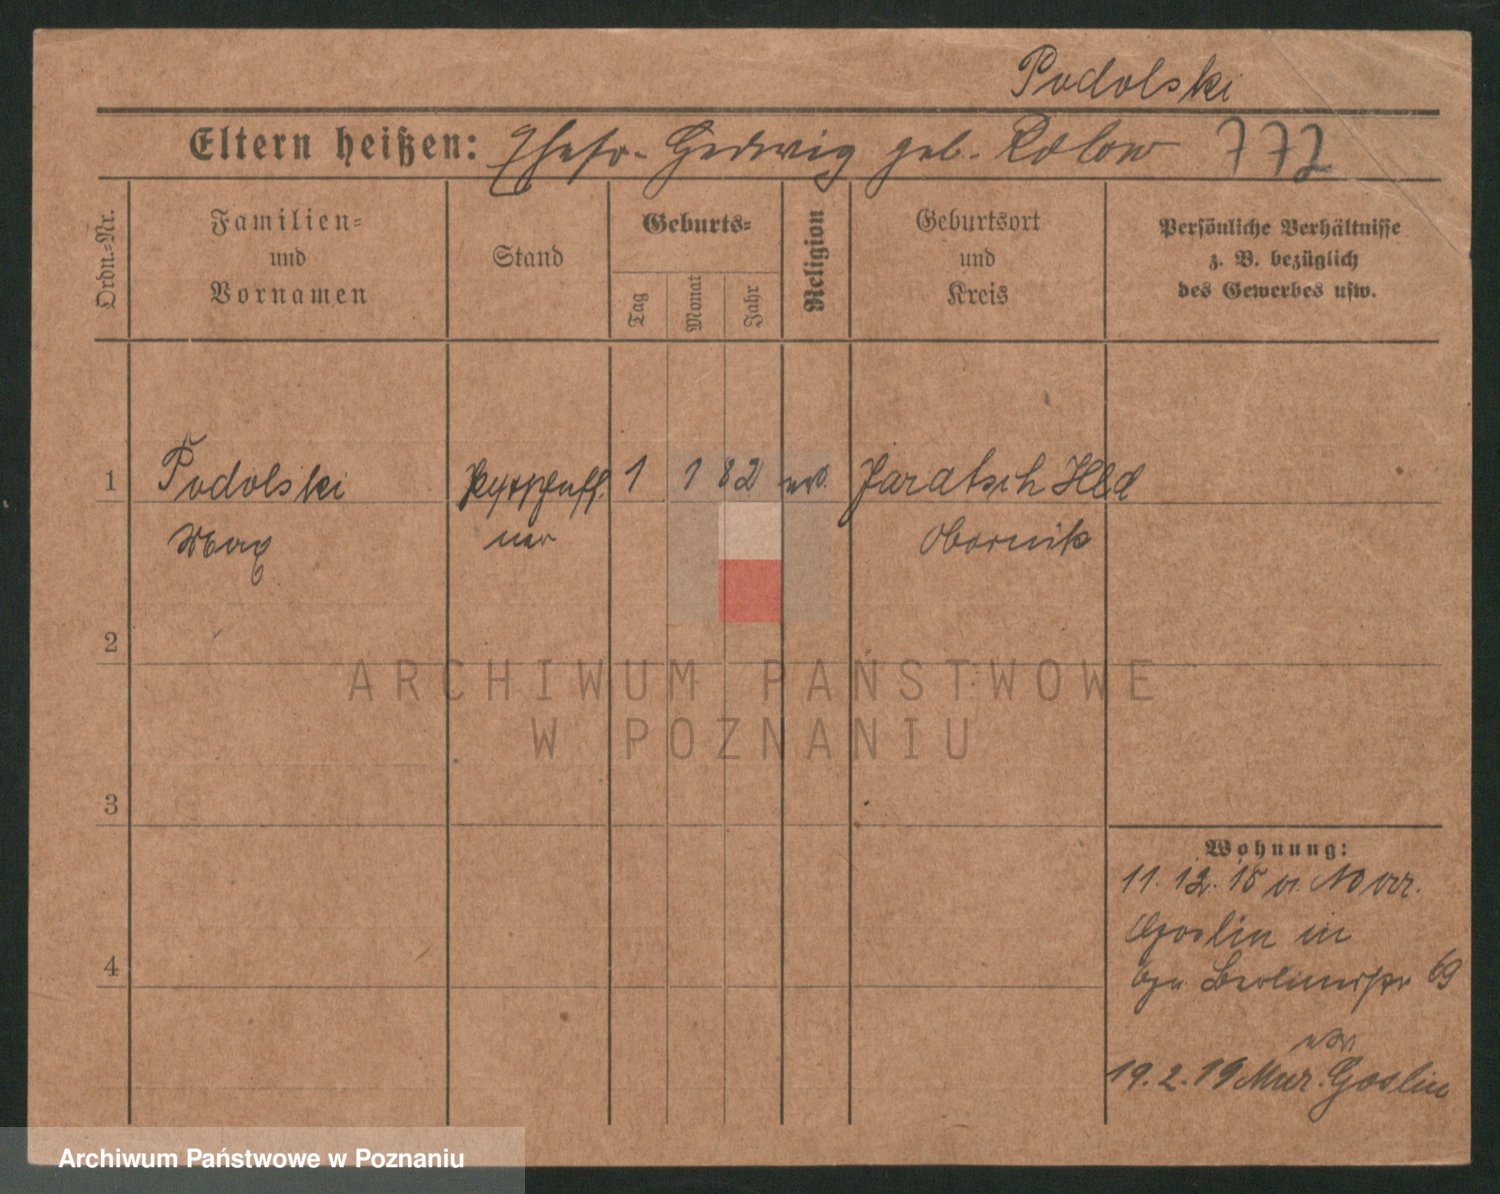 Podolski
Eltern heißen: Ehefr. Hedwig geb. Rolow 772
Ordn.-Nr.
Familien-
und
Vornamen
Stand
Geburts-
Tag
Monat
Jahr
Religion
Geburtsort
und
Kreis
Persönliche Verhältnisse
z. B. bezüglich
des Gewerbes usw.
1 Podolski 1 1 82 Jaratsch Hld
Max ner Obornik
2
3
4
Wohnung:
11. 12. 15 v. Mur.
Goslin in
Berlinerstr 69
19. 2. 19 Mur. Goslin
ARCHIWUM PAŃSTWOWE
W POZNANIU
Archiwum Państwowe w Poznaniu